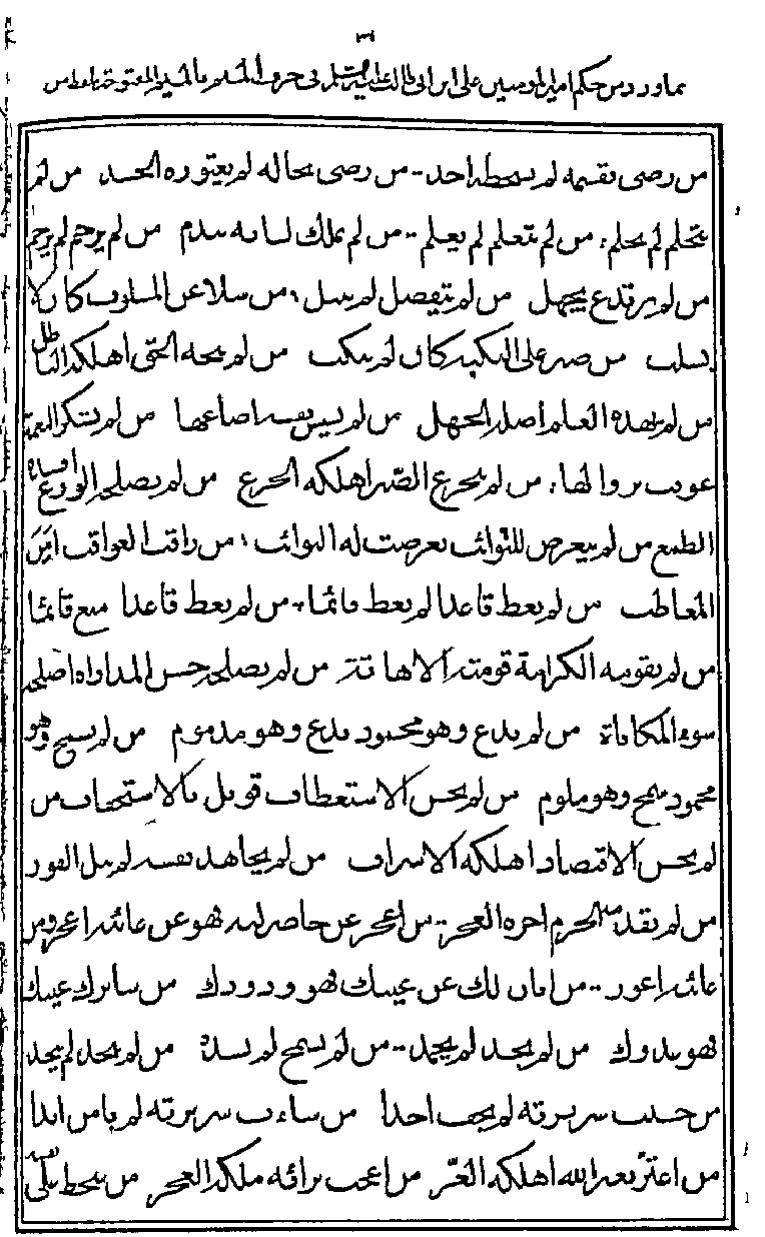 مما ورد من حكم امير المومنين علي ابن ابي طالب عليه السلم في حرف الميم بالميم المفتوحة بلفظ من
من رضى بقسمه لم يسخطه احد من رضى بحاله لم يعتوره الحسد من لم
يتحلم لم يحلم من لم يتعلم لم يعلم من لم يملك لسانه يندم من لم يرحم لم يرحم
من لم يرتدع يجهل من لم يتفضل لم ينبل من سلا عن المسلوب كان لم
يسلب من صبر على النكبه كان لم ينكب من لم ينجه الحق اهلكه الباطل
من لم يهده العلم اضله الجهل من لم يسس نفسه اضاعها من لم يشكر النعمة
عوقب بزوالها من لم ينجه الصبر اهلكه الجزع من لم يصلحه الورع افسده
الطمع من لم يتعرض للنوائب تعرضت له النوائب من راقب العواقب امن
المعاطب من لم يعط قاعدا لم يعط قائما من لم يعط قاعدا منع قائما
من لم يقومه الكرامة قومته الاهانة من لم يصلحه حسن المداراه اصلحه
سوء المكافاة من لم يدع وهو محمود يدع وهو مذموم من لم يسمح وهو
محمود سمح وهو ملوم من لم يحسن الاستعطاف قوبل بالاستخفاف من
لم يحسن الاقتصاد اهلكه الاسراف من لم يجاهد نفسه لم ينل الفوز
من لم يقدمه الحزم اخره العجز من اعجز عن حاضر لبه فهو عن غائبه اعجز ومن
غائبه اعور من ابان لك عن عيبك فهو ودودك من ساترك عيبك
فهو عدوك من لم ينجد لم يحمد من لم يسمح لم يسد من لم يجد لم يحمد
من حسنت سريرته لم يخف احدا من ساءت سريرته لم يامن ابدا
من اغتر بغير الله اهلكه الغر من اعجب برائه ملكه العجز من سخط على نفسه